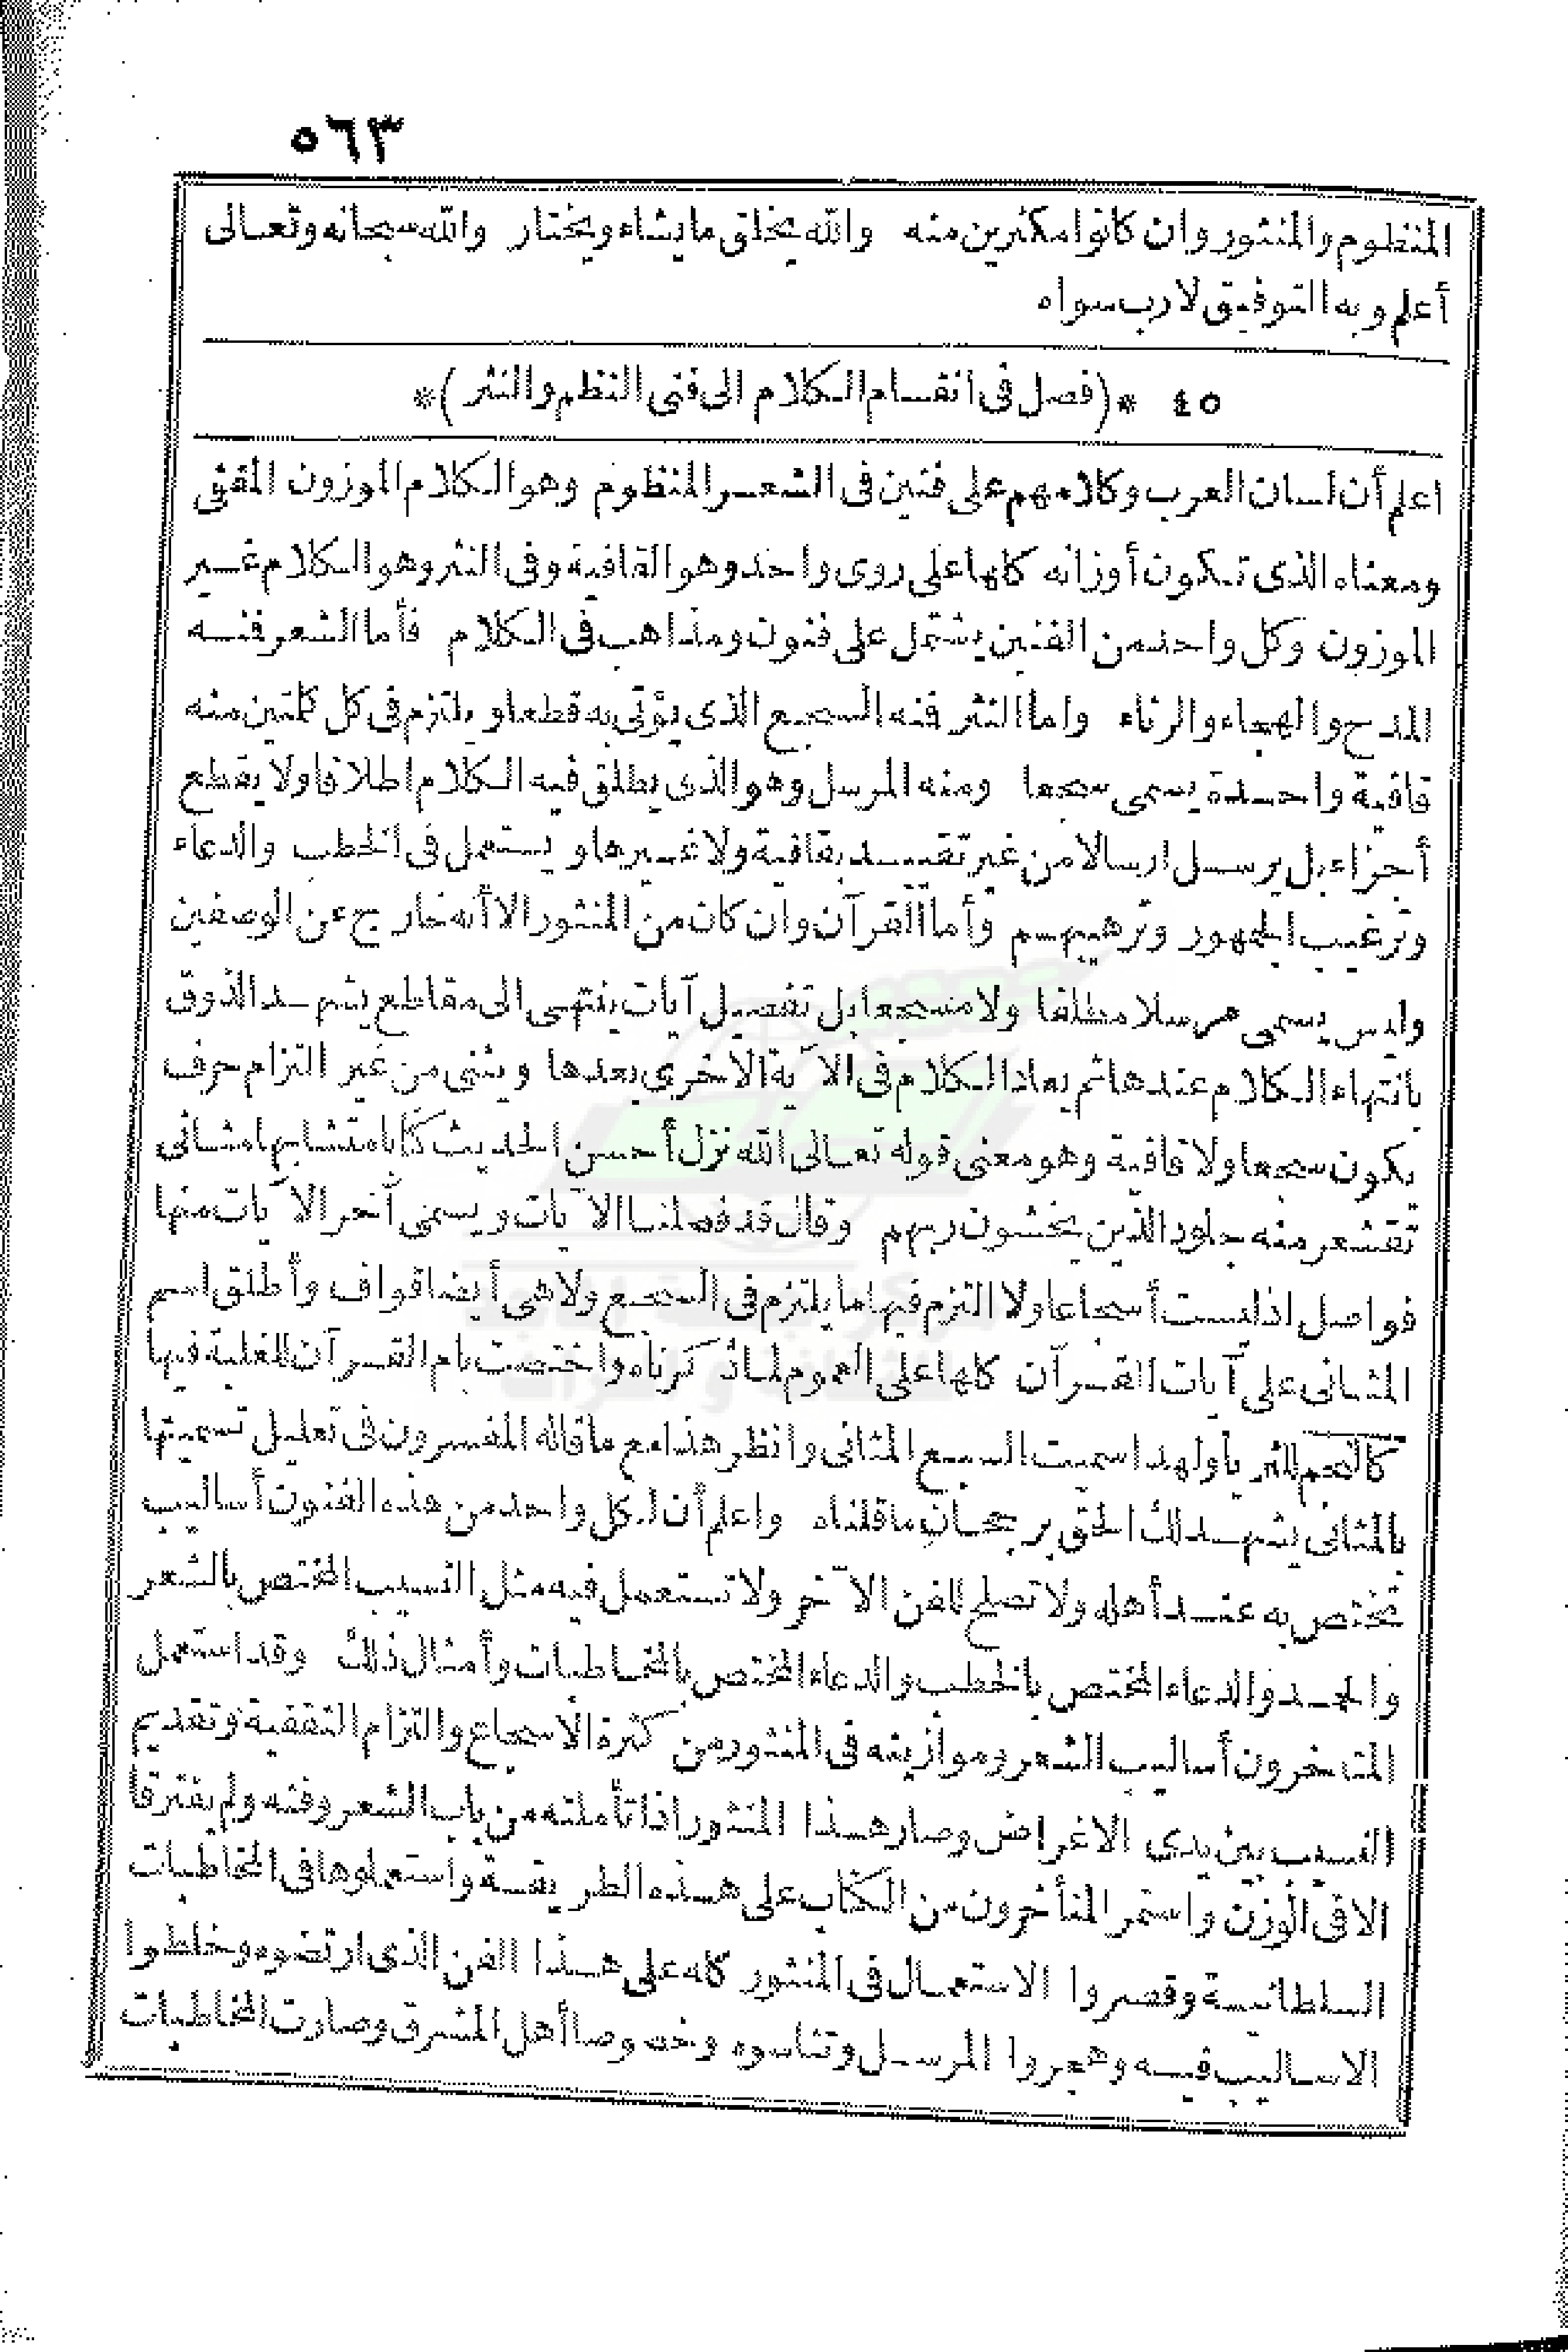 ٥٦٣
المنظوم والمنثور وان كانوا مكثرين منه والله يخلق ما يشاء ويختار والله سبحانه وتعالى
أعلم وبه التوفيق لا رب سواه
٤٥ *(فصل فى انقسام الكلام الى فنى النظم والنثر)*
اعلم أن لسان العرب وكلامهم على فنين فى الشعر المنظوم وهو الكلام الموزون المقفى
ومعناه الذى تكون أوزانه كلها على روى واحد وهو القافية وفى النثر وهو الكلام غير
الموزون وكل واحد من الفنين يشتمل على فنون ومذاهب فى الكلام فأما الشعر فنه
المدح والهجاء والرثاء واما النثر فنه السجع الذى يؤتى به قطعا ويلتزم فى كل كلتين منه
قافية واحدة يسمى سجعا ومنه المرسل وهو الذى يطلق فيه الكلام اطلاقا ولا يقطع
أجزاء بل يرسل ارسالا من غير تقييد بقافية ولا غيرها ويستعمل فى الخطب والدعاء
وترغيب الجمهور وترهيبهم وأما القرآن وان كان من المنثور الا أنه خارج عن الوصفين
وليس يسمى مرسلا مطلقا ولا مسجعا بل تفصيل آيات ينتهى الى مقاطع يشهد الذوق
بانتهاء الكلام عندها ثم يعاد الكلام فى الآية الأخرى بعدها ويثنى من غير التزام حرف
يكون سجعا ولا قافية وهو معنى قوله تعالى الله نزل أحسن الحديث كتابا متشابها مثانى
تقشعر منه جلود الذين يخشون ربهم وقال قد فصلنا الآيات ويسمى آخر الآيات منها
فواصل اذ ليست أسجاعا ولا التزم فيها ما يلتزم فى السجع ولا هى أيضا قواف وأطلق اسم
المثانى على آيات القرآن كلها على العموم لما ذكرناه واختصت بام القرآن للغلبة فيها
كالنجم للثريا ولهذا سميت السبع المثانى وانظر هذا مع ما قاله المفسرون فى تعليل تسميتها
بالمثانى يشهد لك الحق برجحان ما قلناه واعلم أن لكل واحد من هذه الفنون أساليب
تختص به عند أهله ولا تصلح للفن الآخر ولا تستعمل فيه مثل النسيب المختص بالشعر
والحمد والدعاء المختص بالخطب والدعاء المختص بالمخاطبات وأمثال ذلك وقد استعمل
المتأخرون أساليب الشعر وموازينه فى المنثور من كثرة الأسجاع والتزام التقفية وتقديم
النسيب بين يدى الاغراض وصار هذا المنثور اذا تأملته من باب الشعر وفنه ولم يفترقا
الا فى الوزن واستمر المتأخرون من الكتاب على هذه الطريقة واستعملوها فى المخاطبات
السلطانية وقصروا الاستعمال فى المنثور كله على هذا الفن الذى ارتضوه وخلطوا
الاساليب فيه وهجروا المرسل وتناسوه وخصوصا أهل المشرق وصارت المخاطبات